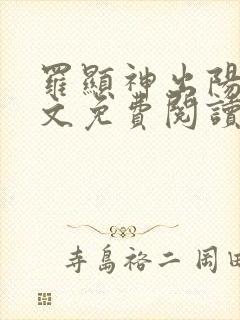 羅顯神出陽
文免費閱讀
寺島裕二 岡田